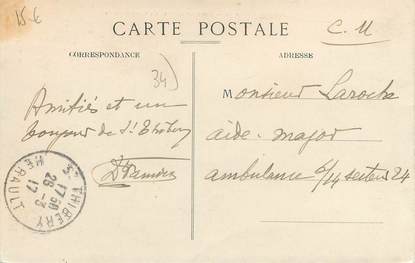 15 €
C. M
CARTE POSTALE
CORRESPONDANCE
ADRESSE
34)
Amitiés et un
bonjour de St Thibery
Monsieur Laroche
aide-major
ambulance 5/14 secteur 24
ST THIBERY
17 30
26 -3
17
HERAULT